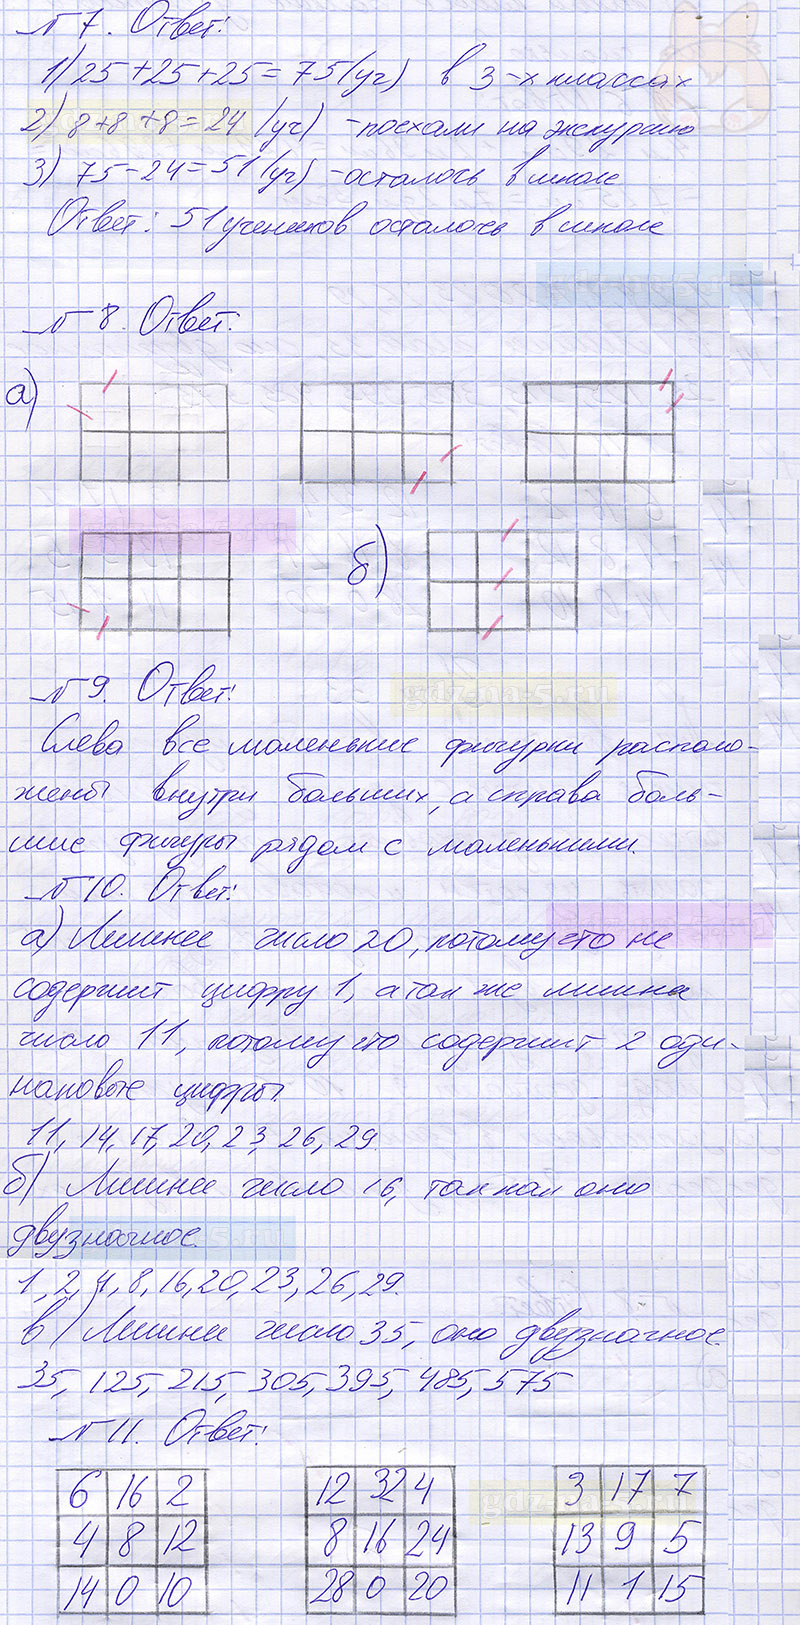 № 7. Ответ:
1) 25+25+25=75(уч) в 3-х классах
2) 8+8+8=24 (уч) -поехали на экскурсию
3) 75-24=51(уч) -осталось в школе
Ответ: 51 учеников осталось в школе
№ 8. Ответ:
а)
б)
№ 9. Ответ:
gdz-na-5.ru
Слева все маленькие фигурки располо-
жены внутри больших, а справа боль-
шие фигуры рядом с маленькими.
№ 10. Ответ:
а) Лишнее число 20, потому что не
содержит цифру 1, а так же лишнее
число 11, потому что содержит 2 оди-
наковые цифры.
11, 14, 17, 20, 23, 26, 29.
б) Лишнее число 16, так как оно
двузначное.
1, 2, 4, 8, 16, 20, 23, 26, 29.
в) Лишнее число 35, оно двузначное.
35, 125, 215, 305, 395, 485, 575
№ 11. Ответ:
6 16 2 12 32 4 3 17 7
4 8 12 8 16 24 13 9 5
14 0 10 28 0 20 11 1 15